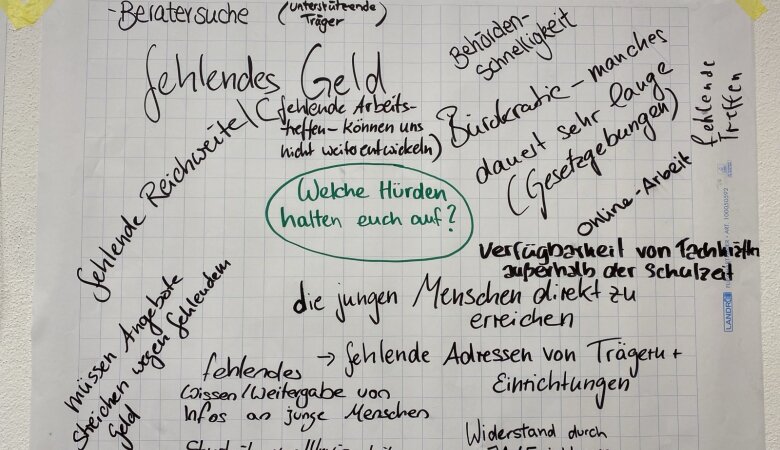 - Beratersuche (unterstützende
Träger)
Behörden-
schnelligkeit
fehlendes Geld
(fehlende Arbeits-
treffen – können uns
nicht weiterentwickeln)
Bürokratie – manches
dauert sehr lange
(Gesetzgebungen)
fehlende
Treffen
fehlende Reichweite
Welche Hürden
halten euch auf?
Online-Arbeit
Verfügbarkeit von Fachkräften
außerhalb der Schulzeit
müssen Angebote
streichen wegen fehlendem
Geld
die jungen Menschen direkt zu
erreichen
→ fehlende Adressen von Trägern +
Einrichtungen
fehlendes
Wissen/Weitergabe von
Infos an junge Menschen
Widerstand durch
LANDRÉ